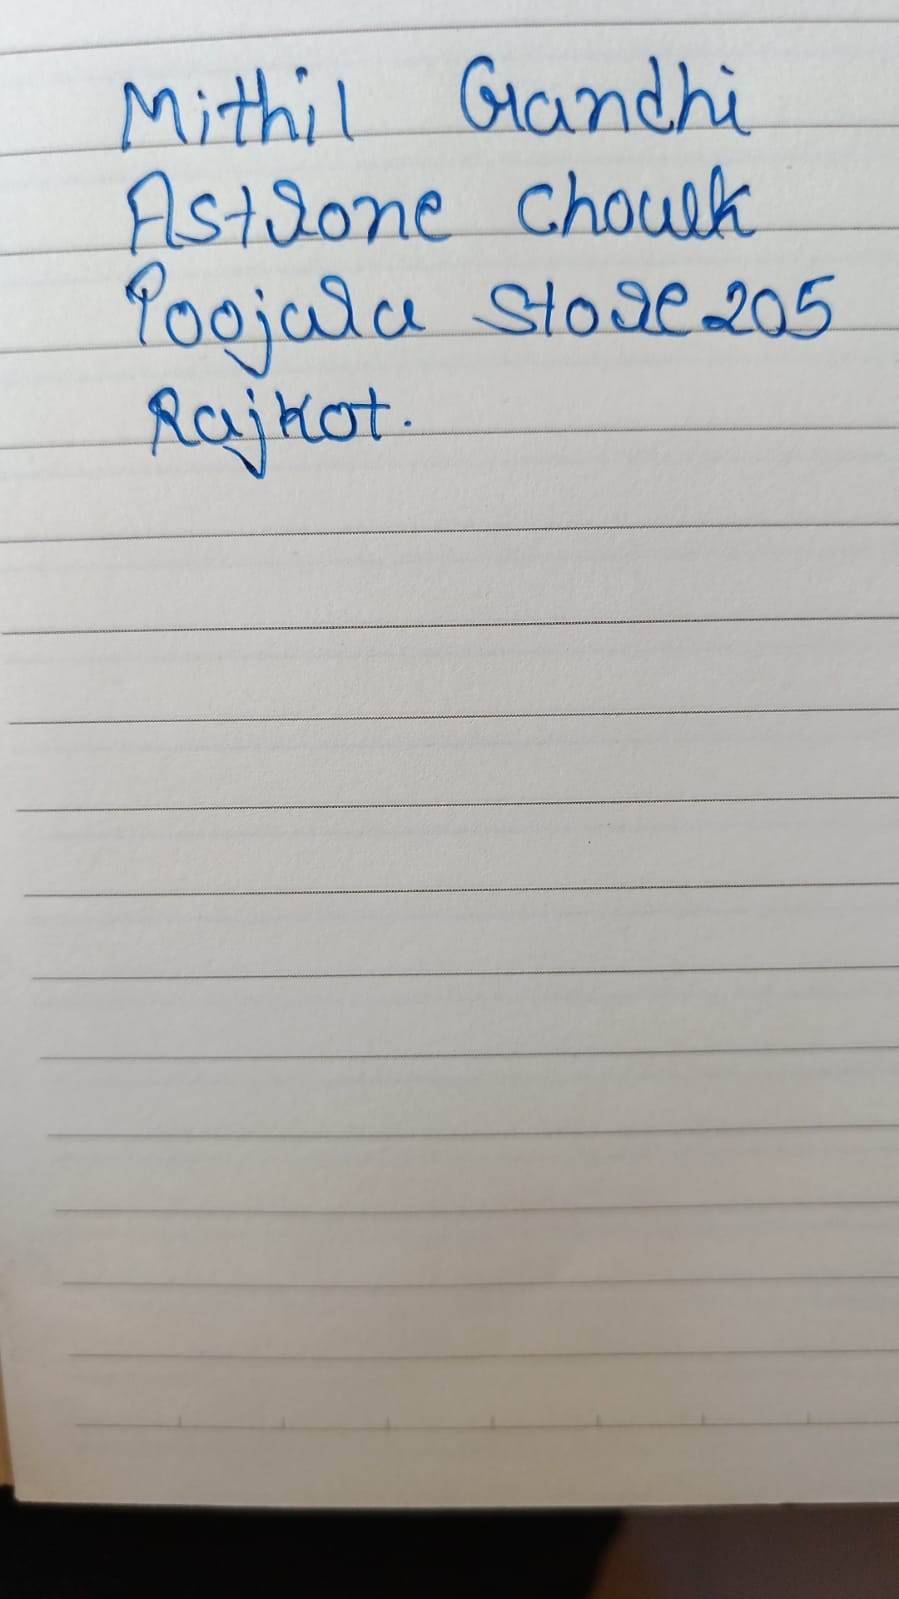 Mithil Gandhi
Astrone Chowk
Poojara Store 205
Rajkot.